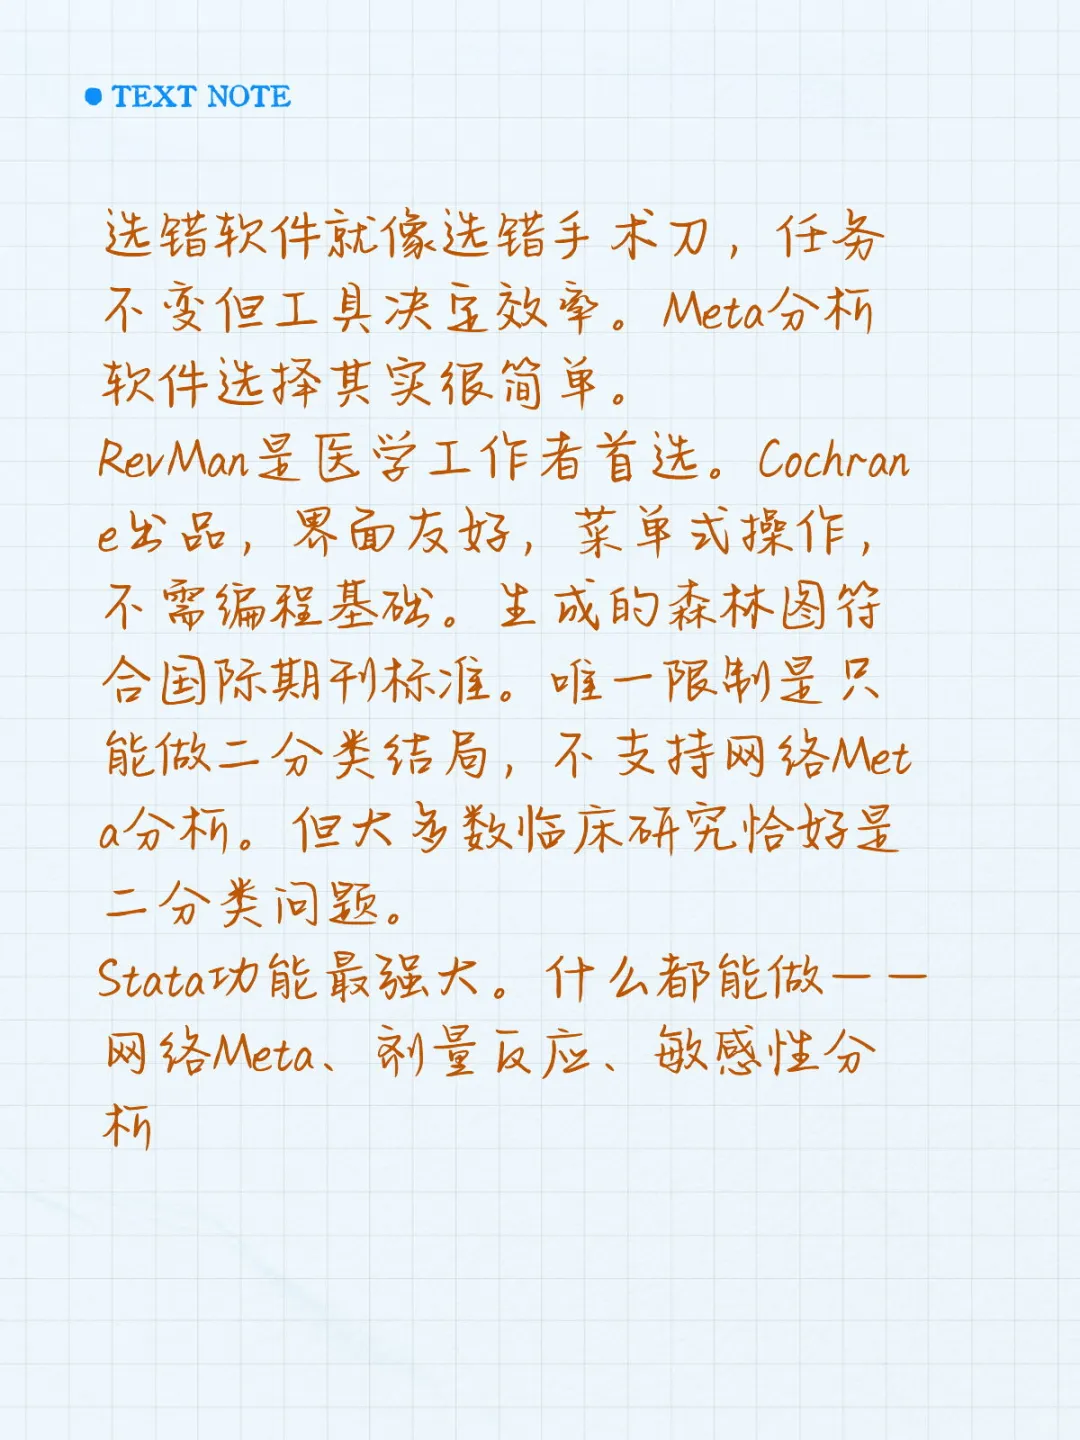 TEXT NOTE
选错软件就像选错手术刀，任务
不变但工具决定效率。Meta分析
软件选择其实很简单。
RevMan是医学工作者首选。Cochran
e出品，界面友好，菜单式操作，
不需编程基础。生成的森林图符
合国际期刊标准。唯一限制是只
能做二分类结局，不支持网络Met
a分析。但大多数临床研究恰好是
二分类问题。
Stata功能最强大。什么都能做——
网络Meta、剂量反应、敏感性分
析